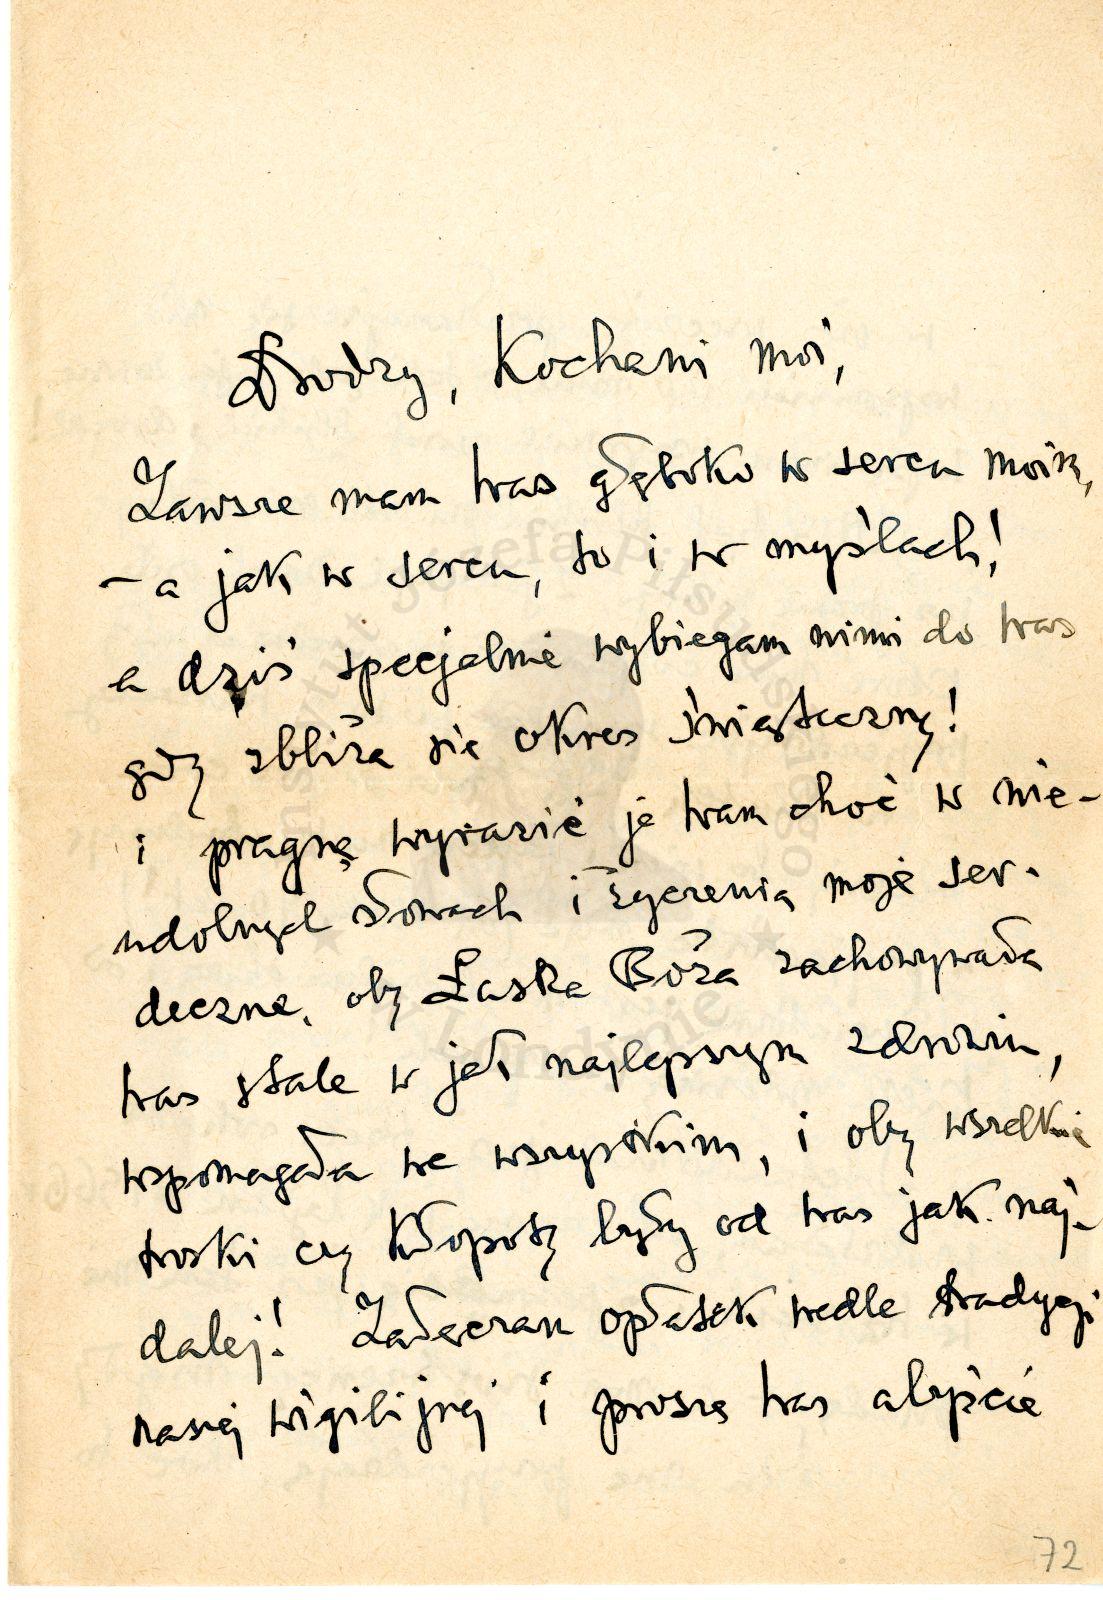 Drodzy, Kochani moi,
Zawsze mam Was głęboko w sercu moim,
– a jak w sercu, to i w myślach!
a dziś specjalnie wybiegam nimi do Was
gdy zbliża się okres świąteczny!
i pragnę wyrazić je Wam choć w nie-
udolnych słowach i życzenia moje ser-
deczne, oby Łaska Boża zachowywała
Was stale w jak najlepszym zdrowiu,
wspomagała we wszystkim, i oby wszelkie
troski czy kłopoty były od Was jak naj-
dalej! Załączam opłatek wedle tradycji
naszej wigilijnej i proszę Was abyście
72
Instytut Józefa Piłsudskiego
w Londynie